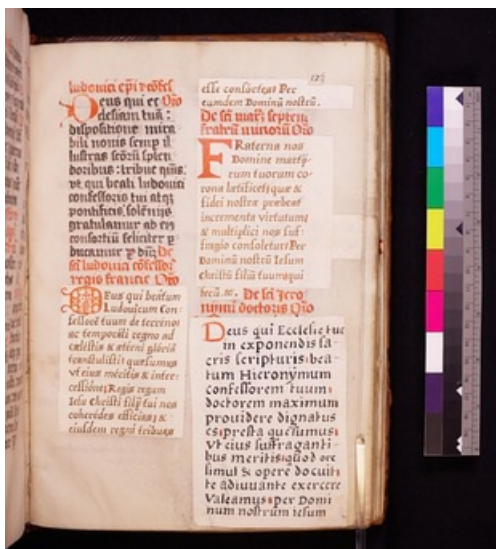 ludovici ep̄i ⁊ cōfes̄
Deus qui ec
clesiam tuā
dispositione mira
bili novis semp̲ il
lustras sc̄oꝝ splen
doribus: tribue q̄ms̄
vt qui beati ludovici
confessoris tui atq̲
pontificis solēnijs
gratulamur ab eius
consortiū feliciter p̲
ducamur p̲ dn̄m De
sc̄i ludovici cōfessor̄
regis francie Or̄o
DEus qui beātum
Ludouicum Con
fessorē tuum de terreno
ac temporāli regno ad
cælestis & æterni glōriā
transtulisti: quæsumus
vt eius méritis & inter-
cessióne: Regis regum
Iesu Christi filÿ tui nos
coherédes efficias: &
eiusdem regni tribuas
123
esse consórtes Per
eumdem Dominū nostrū.
De sc̄is mar̄t̄ septem
fratrū
FRaterna nos
Domine martý-
rum tuorum co-
rona lætíficet: quæ &
fidei nostræ præbeat
incrementa virtutum:
& multíplici nos suf-
frágio consolétur: Per
Dominū nostrū Iesum
christū filiū tuumqui
tecū. &c. De sc̄i Jero
nymi doctoris Or̄o
Deus qui Ecclesie tue
in exponendis sa-
cris scripturis: bea-
tum Hieronymum
confessorem tuum:
doctorem maximum
prouidere dignatus
es: presta quesumus:
vt eius suffraganti-
bus meritis: quod ore
simul & opere docuit:
te adiuuante exercere
Valeamus: per Domi
num nostrum iesum